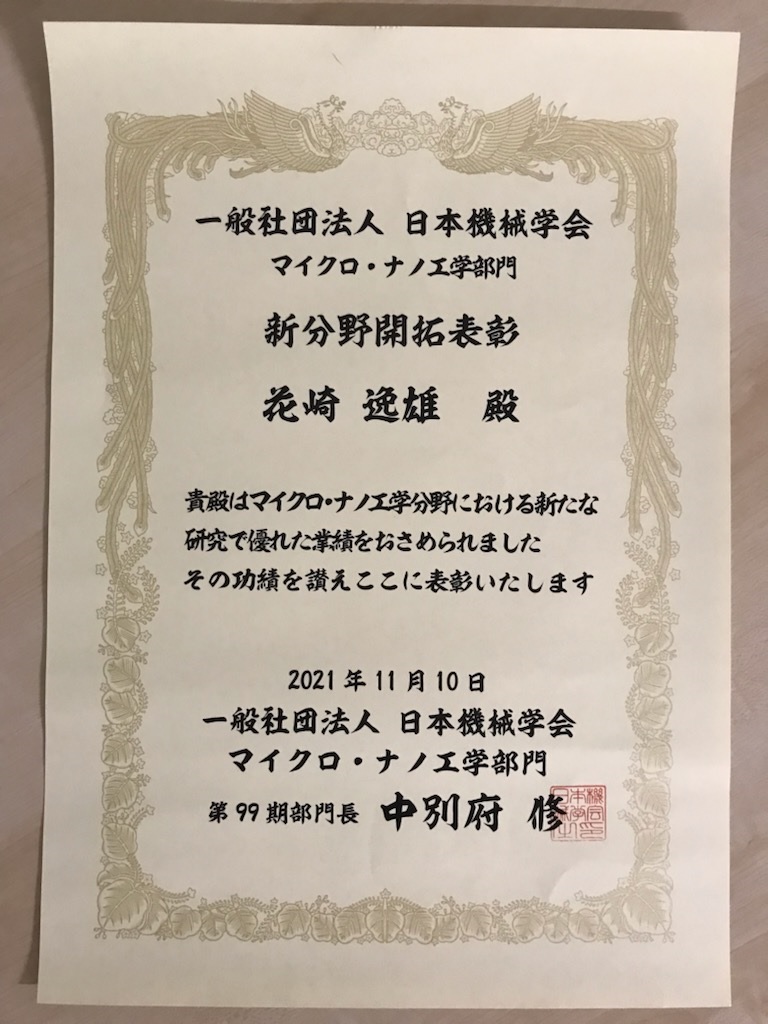 一般社団法人 日本機械学会
マイクロ・ナノ工学部門
新分野開拓表彰
花崎 逸雄 殿
貴殿はマイクロ・ナノ工学分野における新たな
研究で優れた業績をおさめられました
その功績を讃えここに表彰いたします
2021 年 11 月 10 日
一般社団法人 日本機械学会
マイクロ・ナノ工学部門
第 99 期部門長 中別府 修